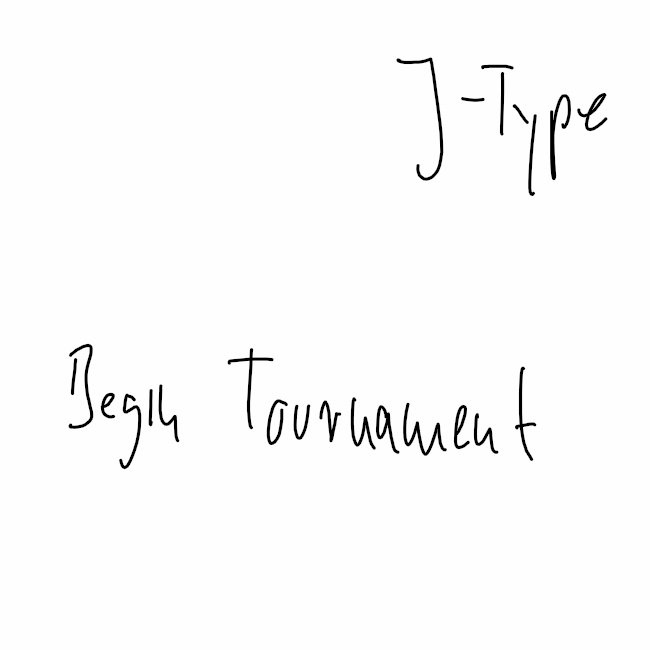 J-Type
Begin Tournament